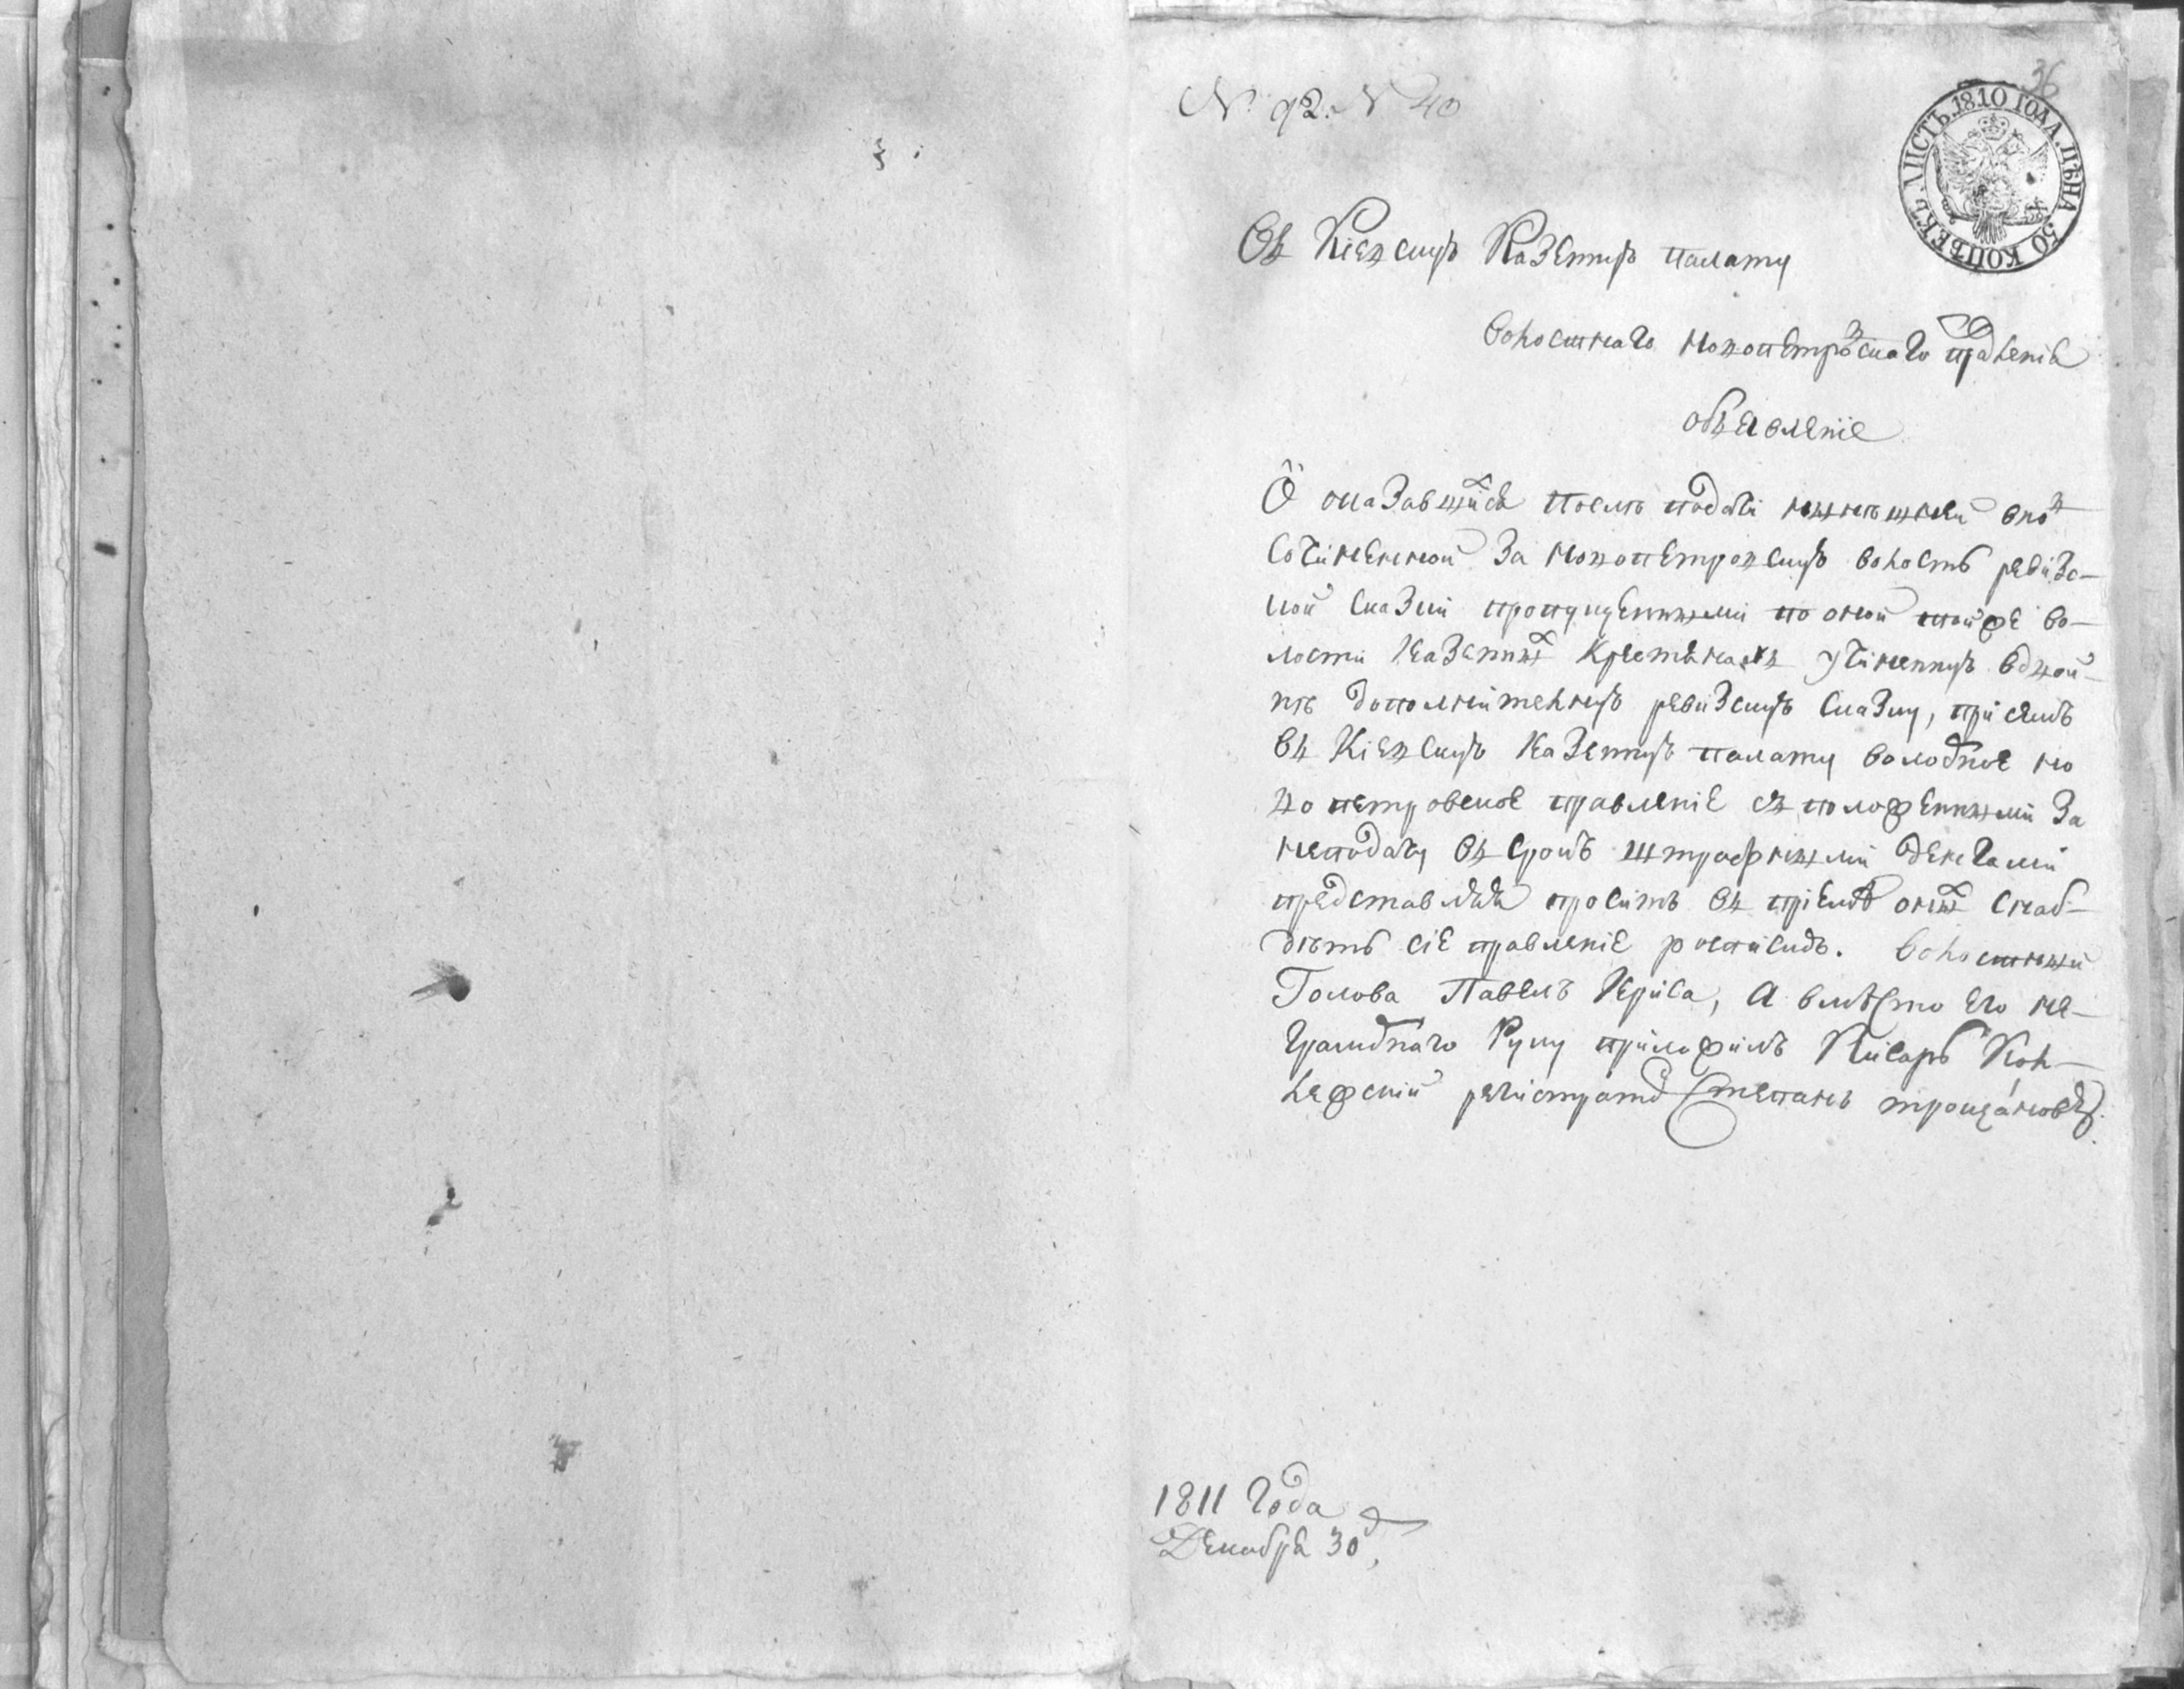 36
N. 92. N 40
ЛИСТЪ. 1810 ГОДА. ЦѢНА 50 КОПѢЕКЪ.
Въ Кіевскую Казенную палату
волостнаго новопетровскаго правленія
объявленіе
О оказавшихся послѣ подачи нынѣшней вновь
сочиненной за новопетровскую волость ревизс-
кой сказки пропущенными по оной той же во-
лости казенныхъ крестьянахъ учиненную вдвой-
нѣ дополнительную ревизскую сказку, при семъ
въ Кіевскую казенную палату волостное но
вопетровское правленіе съ положенными за
неподачу въ срокъ штрафными деньгами
представляя проситъ въ пріемѣ оныхъ снаб-
дѣть сіе правленіе роспискою. Волостный
Голова Павелъ Криса, а вмѣсто его не-
грамотнаго руку приложилъ Писарь Кол-
лежскій регистраторъ Степанъ трощановъ
1811 Года
Декабря 30 д.